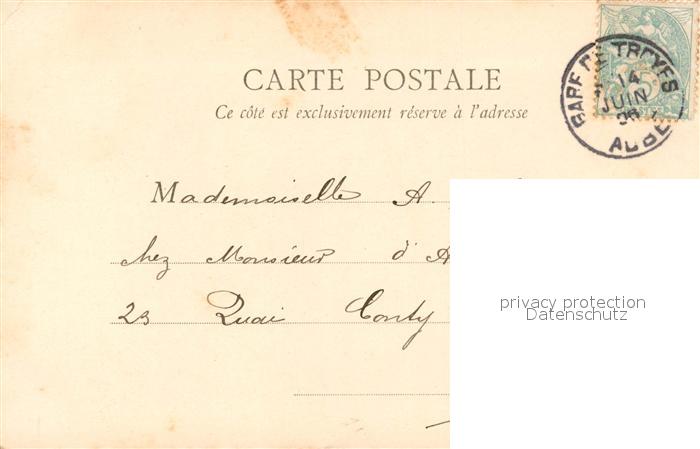 CARTE POSTALE
Ce côté est exclusivement réservé à l'adresse
GARE DE TROYES
14
JUIN
AUBE
Mademoiselle A.
chez Monsieur d'A
23 Quai Conty
privacy protection
Datenschutz